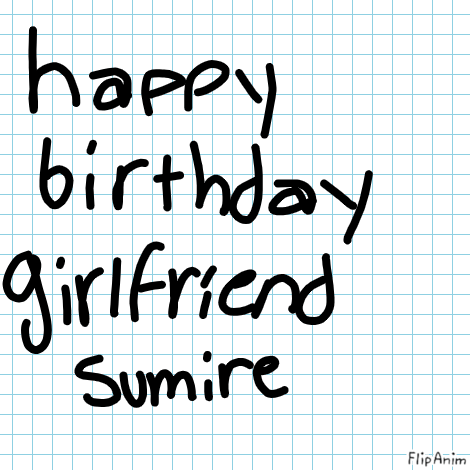 happy
birthday
girlfriend
sumire
FlipAnim